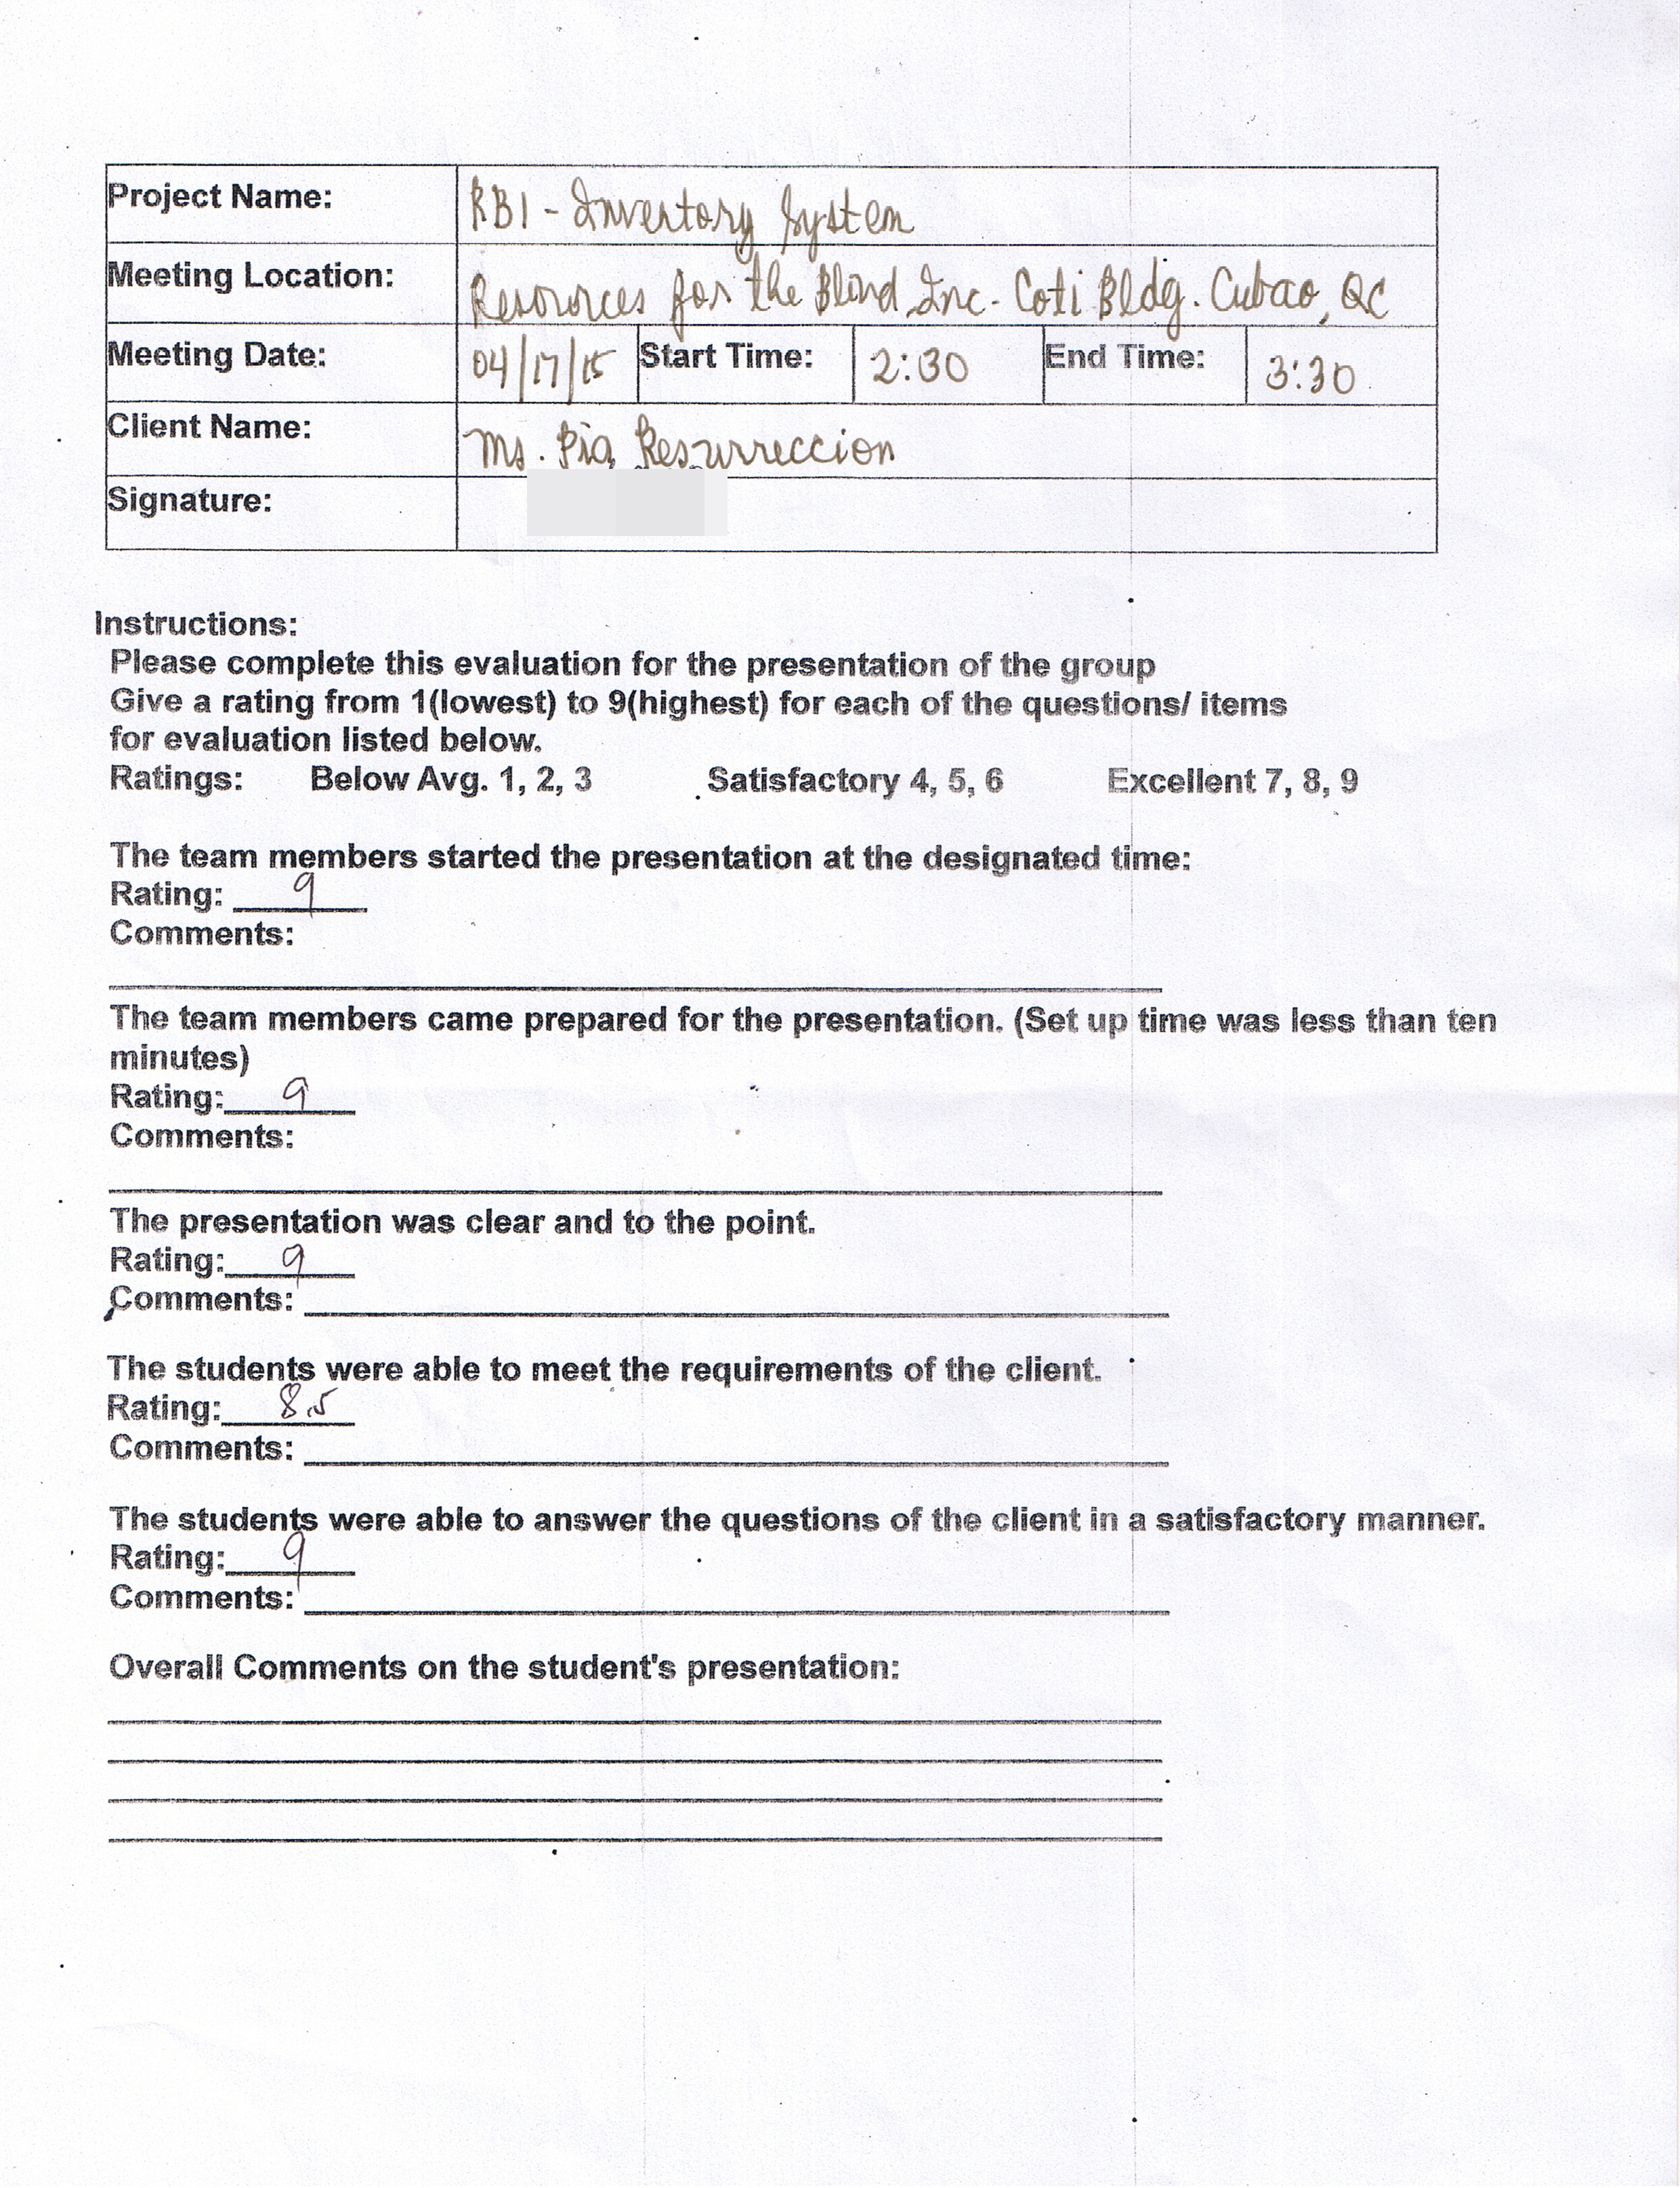 Project Name: RBI - Inventory System
Meeting Location: Resources for the Blind, Inc - Coti Bldg. Cubao, QC
Meeting Date: 04/17/15 Start Time: 2:30 End Time: 3:30
Client Name: Ms. Pia Resurreccion
Signature:
Instructions:
Please complete this evaluation for the presentation of the group
Give a rating from 1(lowest) to 9(highest) for each of the questions/ items
for evaluation listed below.
Ratings: Below Avg. 1, 2, 3 Satisfactory 4, 5, 6 Excellent 7, 8, 9
The team members started the presentation at the designated time:
Rating: 9
Comments:
The team members came prepared for the presentation. (Set up time was less than ten
minutes)
Rating: 9
Comments:
The presentation was clear and to the point.
Rating: 9
Comments:
The students were able to meet the requirements of the client.
Rating: 8.5
Comments:
The students were able to answer the questions of the client in a satisfactory manner.
Rating: 9
Comments:
Overall Comments on the student's presentation: